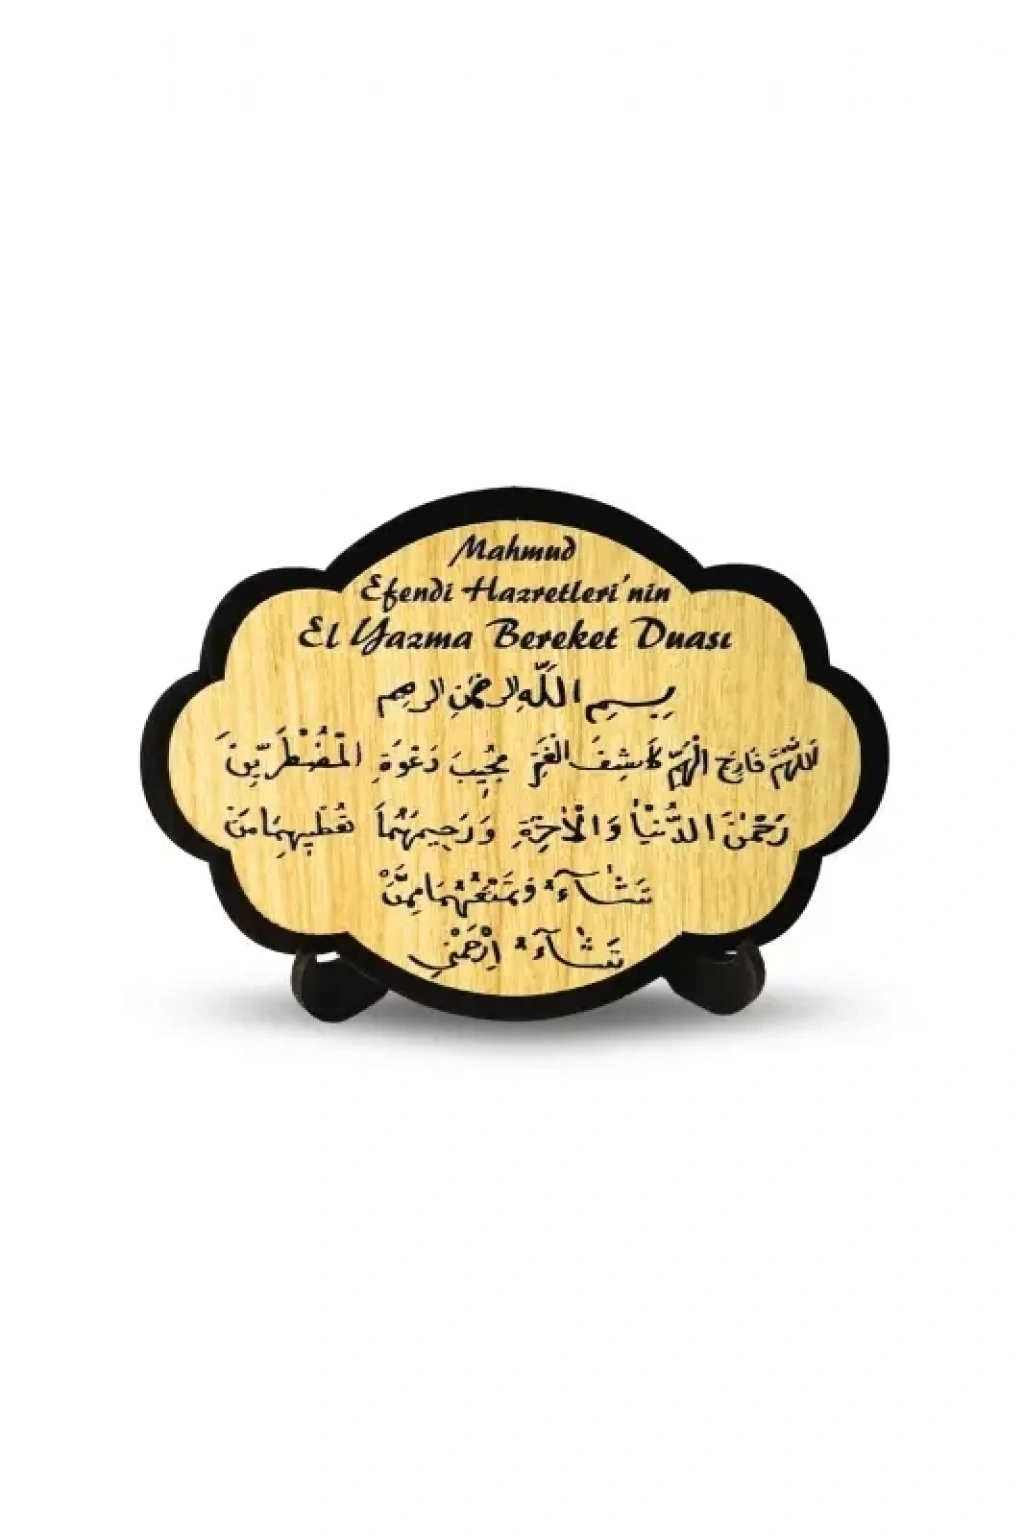 Mahmud
Efendi Hazretleri'nin
El Yazma Bereket Duası
بِسْمِ اللَّهِ الرحمٰنِ الرحيم
اَللَّهُمَّ فَارِجَ الْهَمِّ كَاشِفَ الْغَمِّ مُجِيبَ دَعْوَةِ الْمُضْطَرِّينَ
رَحْمٰنَ الدُّنْيَا وَالْاٰخِرَةِ وَرَحِيمَهُمَا تُعْطِيهِمَا مَنْ
تَشَآءُ وَتَمْنَعُهُمَا مِمَّنْ
تَشَآءُ اِرْحَمْنِي